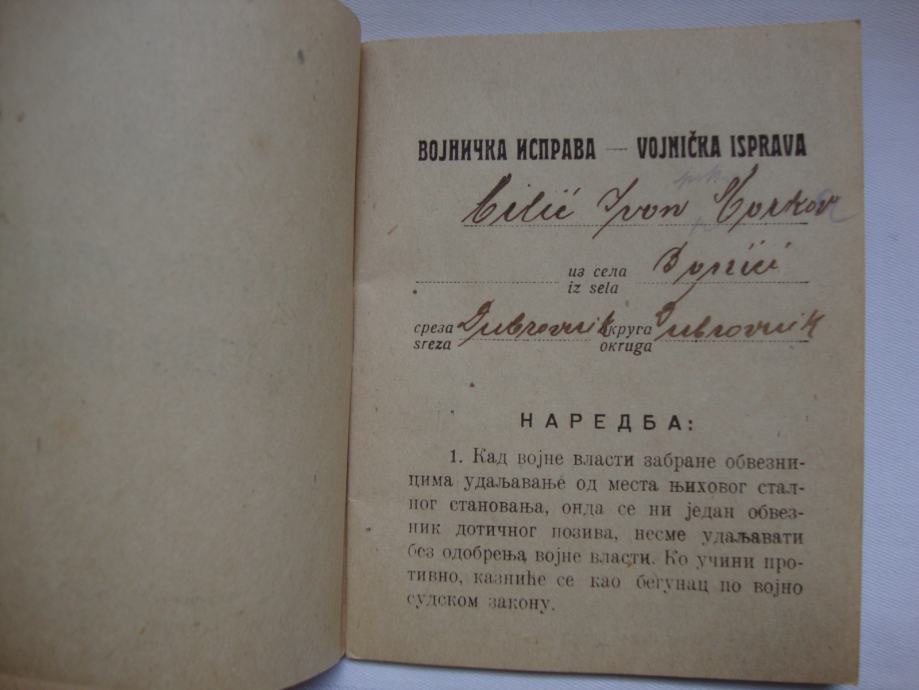 ВОЈНИЧКА ИСПРАВА — VOJNIČKA ISPRAVA
Cilić Ivon
из села
iz sela
среза Dubrovnik округа Dubrovnik
sreza okruga
НАРЕДБА:
1. Кад војне власти забране обвезни-
цима удаљавање од места њиховог стал-
ног становања, онда се ни један обвез-
ник дотичног позива, несме удаљавати
без одобрења војне власти. Ко учини про-
тивно, казниће се као бегунац по војно
судском закону.